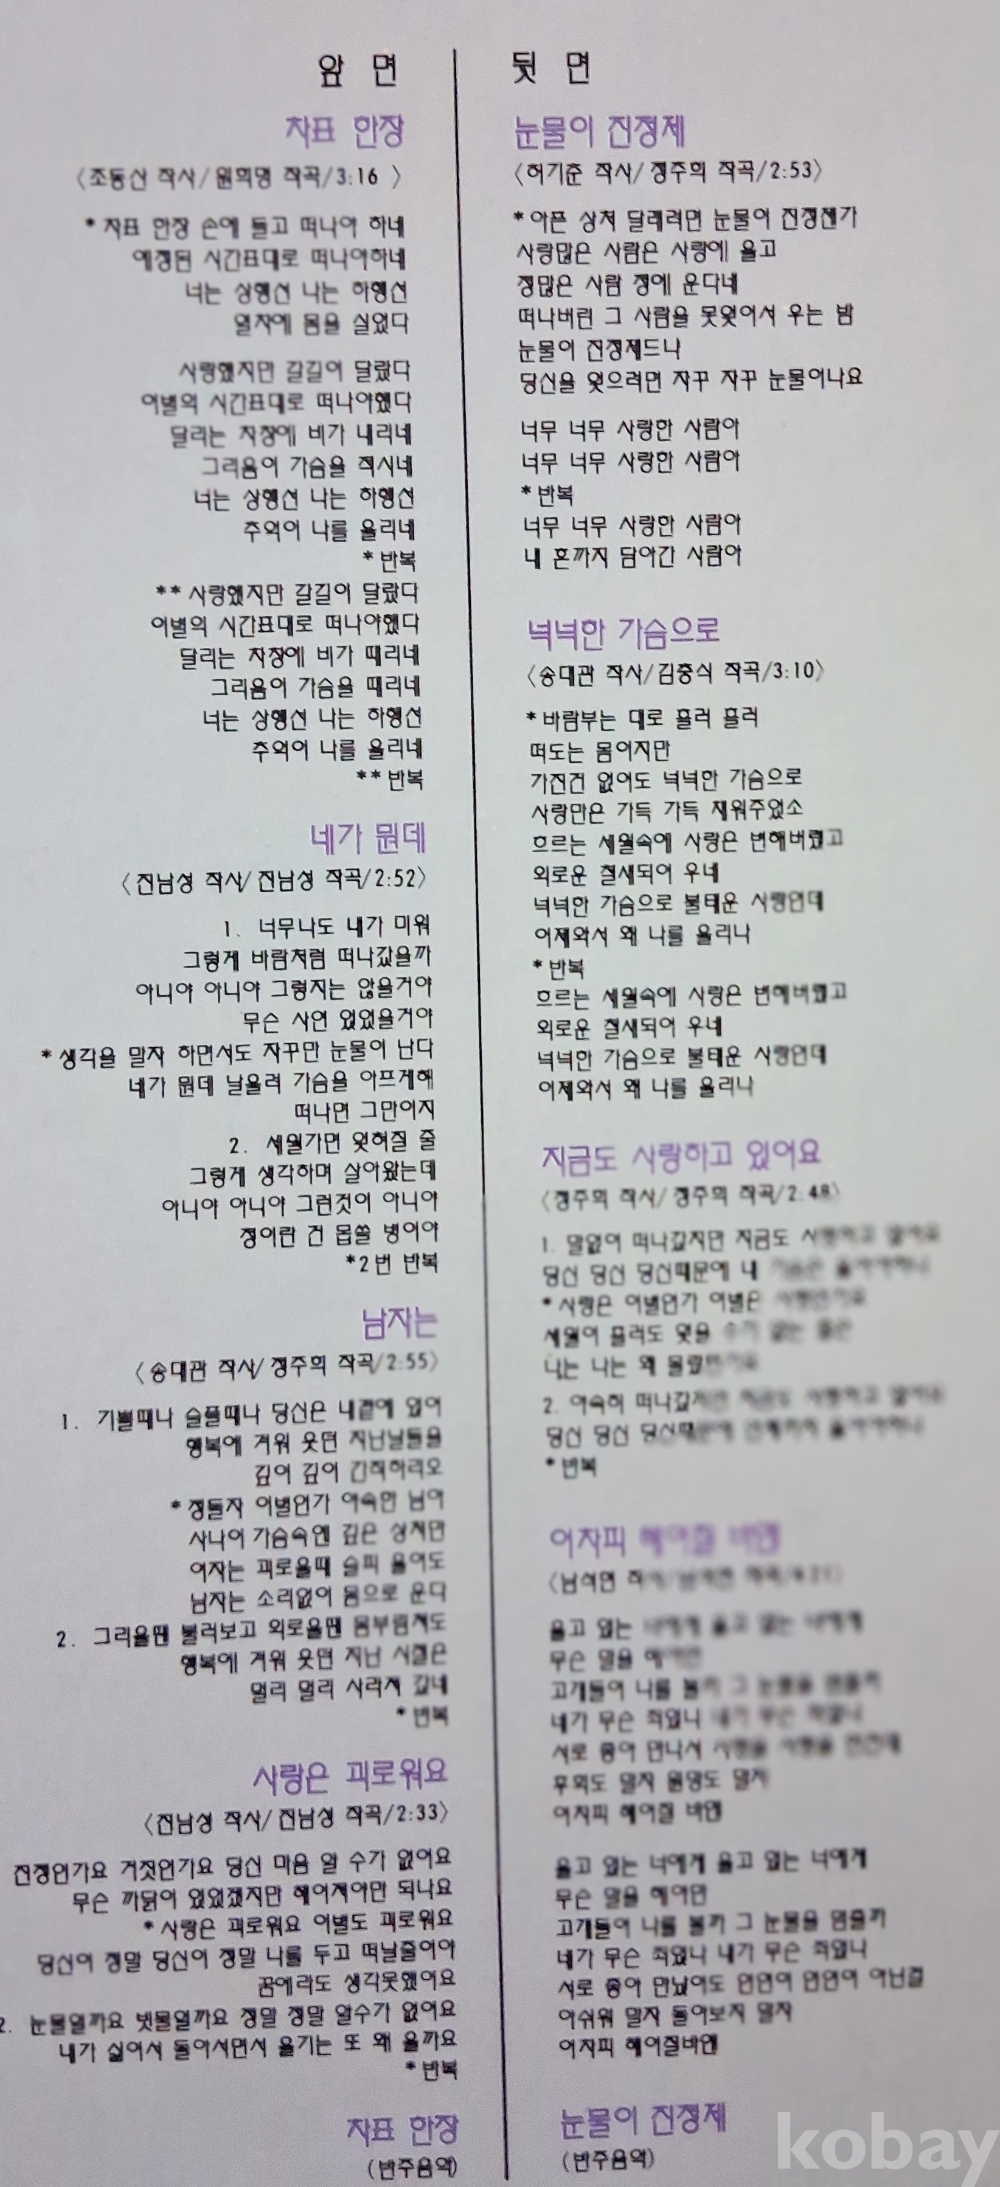 앞 면
차표 한장
〈조동산 작사/원희명 작곡/3:16 〉
* 차표 한장 손에 들고 떠나야 하네
예정된 시간표대로 떠나야하네
너는 상행선 나는 하행선
열차에 몸을 실었다
사랑했지만 갈길이 달랐다
이별의 시간표대로 떠나야했다
달리는 차창에 비가 내리네
그리움이 가슴을 적시네
너는 상행선 나는 하행선
추억이 나를 울리네
*반복
** 사랑했지만 갈길이 달랐다
이별의 시간표대로 떠나야했다
달리는 차창에 비가 때리네
그리움이 가슴을 때리네
너는 상행선 나는 하행선
추억이 나를 울리네
** 반복
네가 뭔데
〈진남성 작사/진남성 작곡/2:52〉
1. 너무나도 내가 미워
그렇게 바람처럼 떠나갔을까
아니야 아니야 그렇지는 않을거야
무슨 사연 있었을거야
* 생각을 말자 하면서도 자꾸만 눈물이 난다
네가 뭔데 날울려 가슴을 아프게해
떠나면 그만이지
2. 세월가면 잊혀질 줄
그렇게 생각하며 살아왔는데
아니야 아니야 그런것이 아니야
정이란 건 몹쓸 병이야
*2번 반복
남자는
〈송대관 작사/정주희 작곡/2:55〉
1. 기쁠때나 슬플때나 당신은 내곁에 있어
행복에 겨워 웃던 지난날들을
깊이 깊이 간직하리오
* 정들자 이별인가 야속한 님아
사나이 가슴속엔 깊은 상처만
여자는 괴로울때 슬피 울어도
남자는 소리없이 몸으로 운다
2. 그리울땐 불러보고 외로울땐 몸부림쳐도
행복에 겨워 웃던 지난 시절은
멀리 멀리 사라져 갔네
* 반복
사랑은 괴로워요
〈진남성 작사/진남성 작곡/2:33〉
진정인가요 거짓인가요 당신 마음 알 수가 없어요
무슨 까닭이 있었겠지만 헤어져야만 되나요
* 사랑은 괴로워요 이별도 괴로워요
당신이 정말 당신이 정말 나를 두고 떠날줄이야
꿈에라도 생각못했어요
2. 눈물일까요 빗물일까요 정말 정말 알수가 없어요
내가 싫어서 돌아서면서 울기는 또 왜 울까요
* 반복
차표 한장
(반주음악)
뒷 면
눈물이 진정제
〈허기준 작사/정주희 작곡/2:53〉
* 아픈 상처 달래려면 눈물이 진정젠가
사랑많은 사람은 사랑에 울고
정많은 사람 정에 운다네
떠나버린 그 사람을 못잊어서 우는 밤
눈물이 진정제드냐
당신을 잊으려면 자꾸 자꾸 눈물이나요
너무 너무 사랑한 사람아
너무 너무 사랑한 사람아
*반복
너무 너무 사랑한 사람아
내 혼까지 담아간 사람아
넉넉한 가슴으로
〈송대관 작사/김중식 작곡/3:10〉
* 바람부는 대로 흘러 흘러
떠도는 몸이지만
가진건 없어도 넉넉한 가슴으로
사랑만은 가득 가득 채워주었소
흐르는 세월속에 사랑은 변해버렸고
외로운 철새되어 우네
넉넉한 가슴으로 불태운 사랑인데
이제와서 왜 나를 울리나
* 반복
흐르는 세월속에 사랑은 변해버렸고
외로운 철새되어 우네
넉넉한 가슴으로 불태운 사랑인데
이제와서 왜 나를 울리나
지금도 사랑하고 있어요
〈정주희 작사/정주희 작곡/2:48〉
1. 말없이 떠나갔지만 지금도
당신 당신 당신때문에 내
* 사랑은 이별인가 이별은
세월이 흘러도 잊을 수가 없는
나는 나는 왜 몰랐던가요
2. 야속히 떠나갔지만 지금도
당신 당신 당신때문에
* 반복
어차피 헤어질 바엔
울고 있는 너에게 울고 있는 너에게
무슨 말을 해야만
고개들어 나를 볼까 그 눈물을 멈출까
네가 무슨 죄였니 내가 무슨 죄였니
서로 좋아 만나서
후회도 말자 원망도 말자
어차피 헤어질 바엔
울고 있는 너에게 울고 있는 너에게
무슨 말을 해야만
고개들어 나를 볼까 그 눈물을 멈출까
네가 무슨 죄였니 내가 무슨 죄였니
서로 좋아 만났어도 인연이 인연이 아닌걸
아쉬워 말자 돌아보지 말자
어차피 헤어질바엔
눈물이 진정제
(반주음악)
kobay